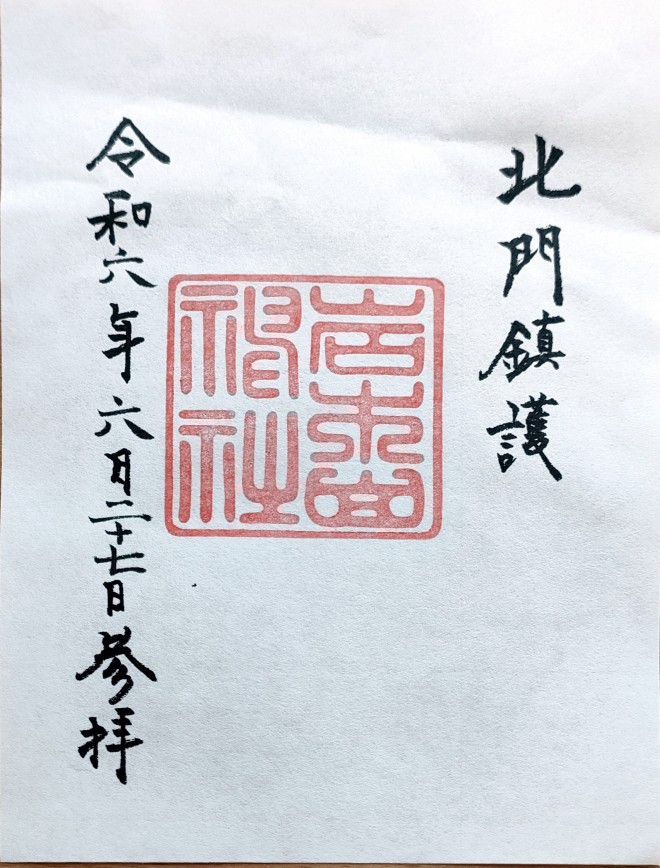 北門鎮護
岩木山
神社
令和六年六月二十七日参拝